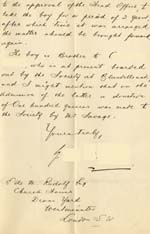 to the approval of the Head Office to
take the boy for a period of 2 years
after which time it was arranged
the matter should be brought forward
again.
The boy is Brother to C
who is at present boarded
out by the Society at
and I might mention that on the
admission of the latter a donation
of One hundred guineas was made to
the Society by Mr Savage.
Yours truly,
E. de M. Rudolf Esq
Church House
Deans Yard
Westminster
London S.W